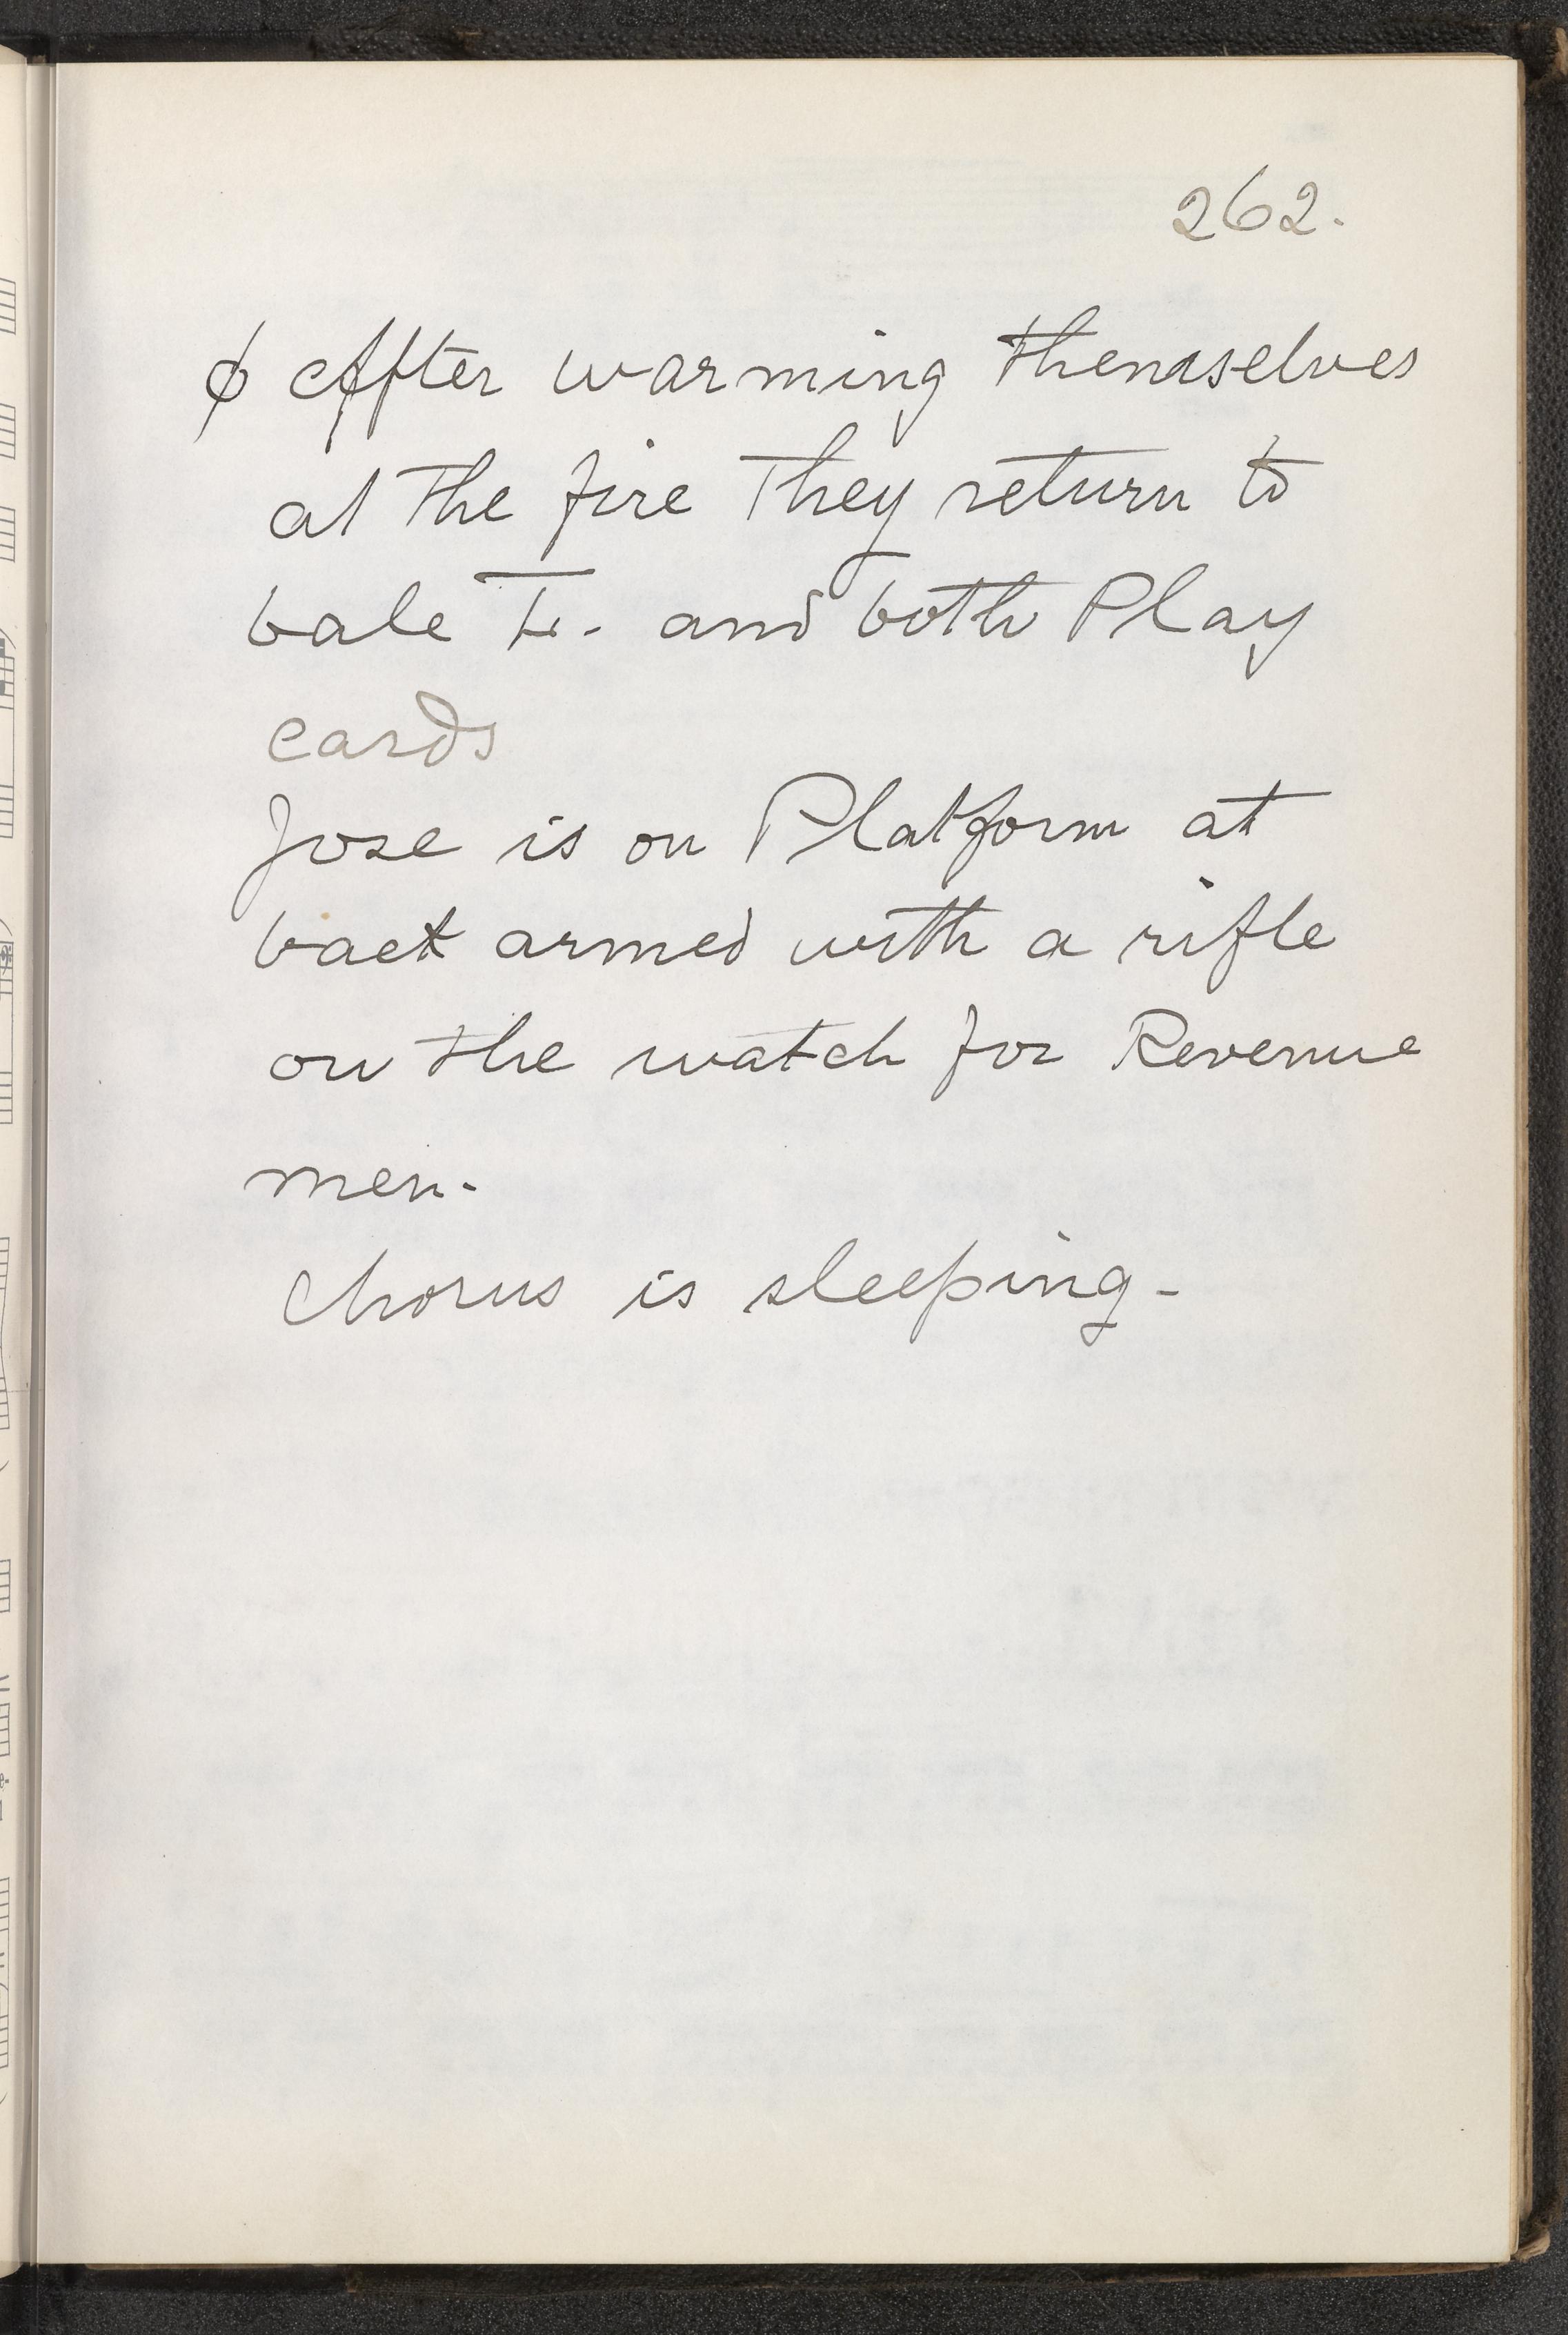 262.
ϕ After warming themselves
at the fire They return to
bale F. and both Play
cards
Jose is on Platform at
back armed with a rifle
on the watch for Revenue
men.
Chorus is sleeping-